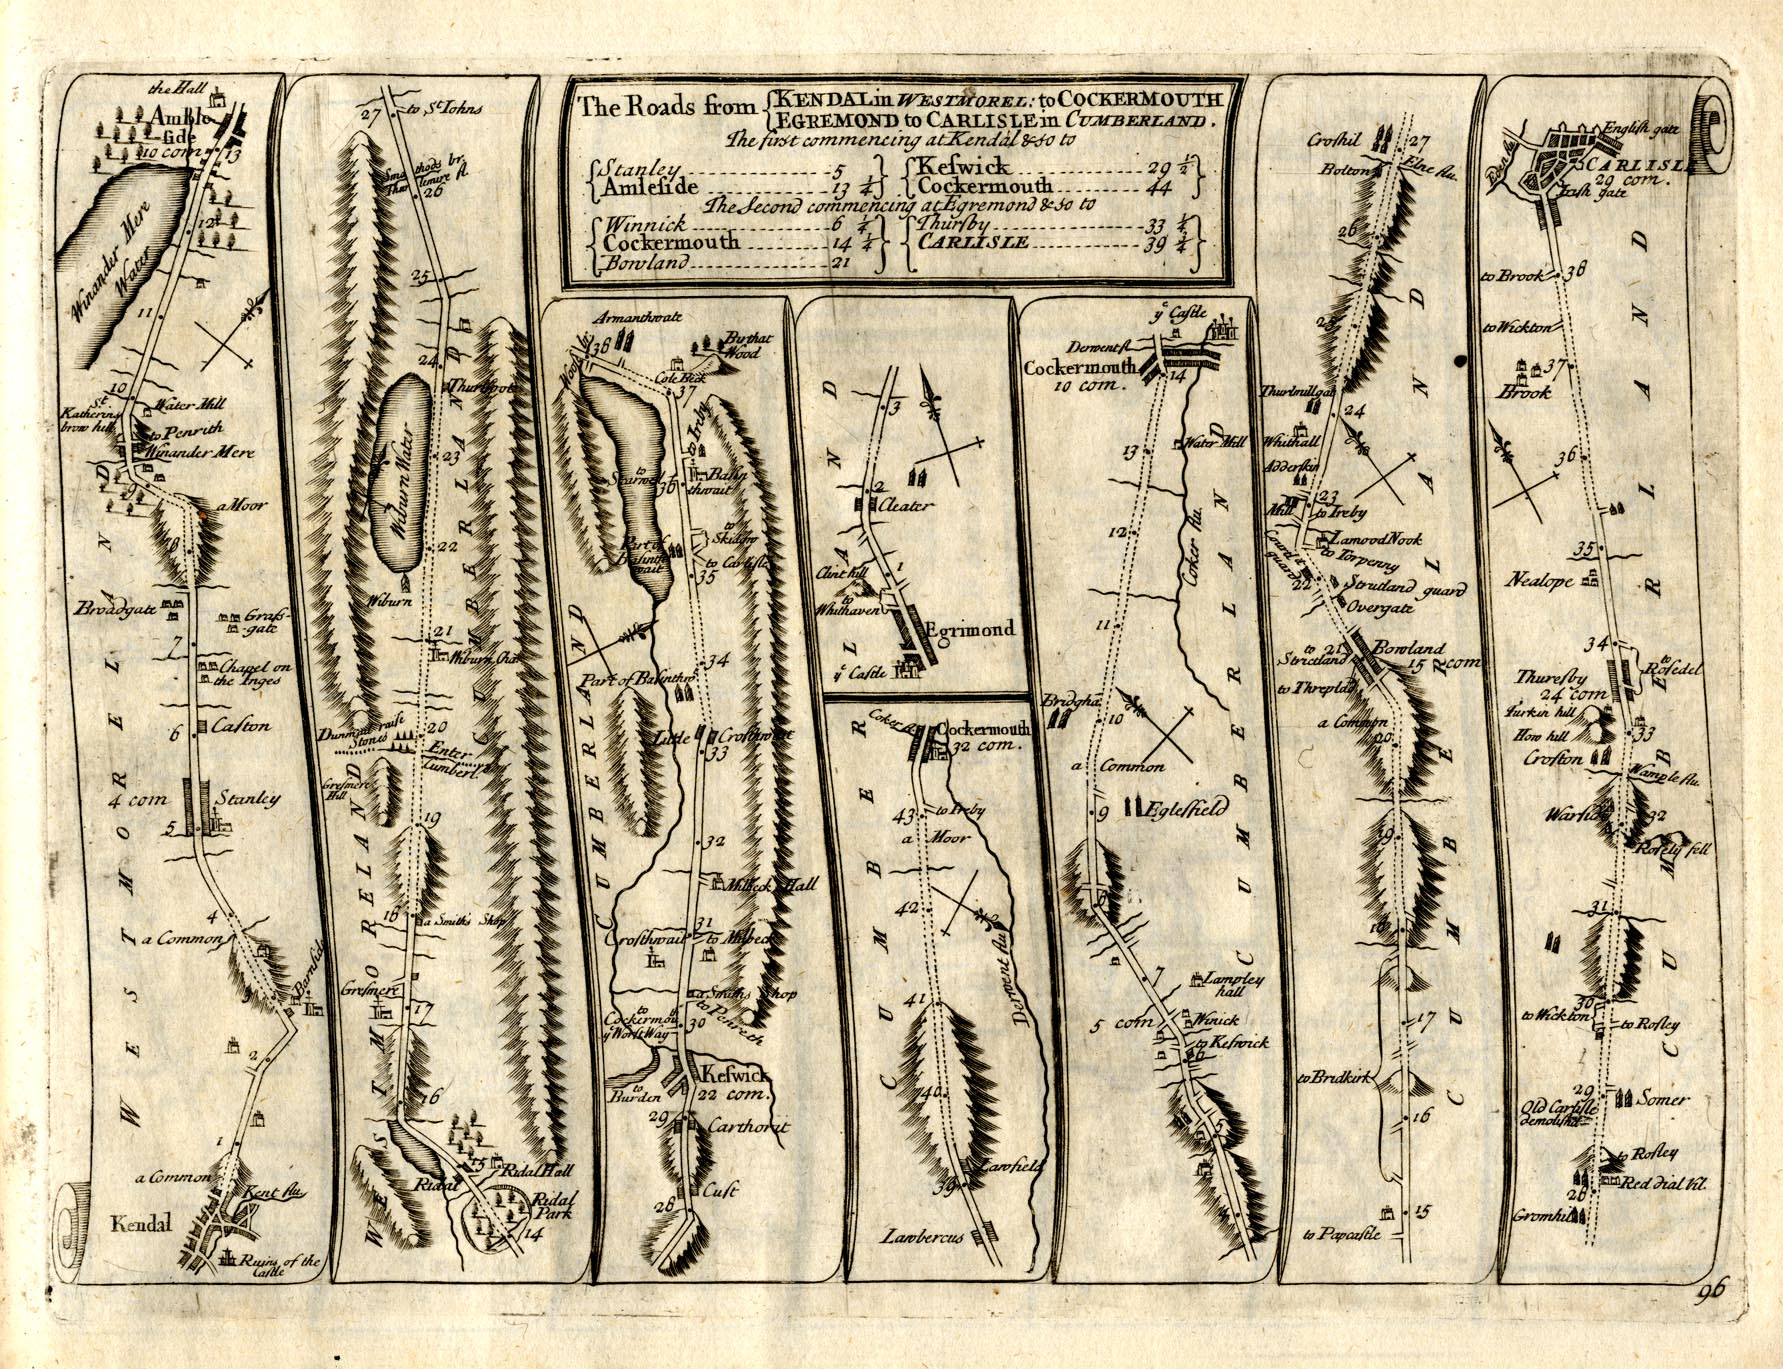 The Roads from { KENDAL in WESTMOREL: to COCKERMOUTH
EGREMOND to CARLISLE in CUMBERLAND.
The first commencing at Kendal & so to
Stanley 5
Amleside 13 1/4
Keswick 29 1/2
Cockermouth 44
The Second commencing at Egremond & so to
Winnick 6 1/4
Cockermouth 14 1/4
Bowland 21
Thursby 33 1/4
CARLISLE 39 1/4
the Hall
Ambleside
10 com
13
12
Winander Mere
Water
11
10
St
Katherins
brow hill
Water Mill
to Penrith
Winander Mere
9
a Moor
8
Broadgate
Grass-
gate
7
Chapel on
the Inges
6
Caston
4 com
Stanley
5
4
a Common
Barnside
3
2
1
a Common
Kent flu
Kendal
Ruins of the
Castle
WESTMORELAND
27
to St Iohns
26
25
24
Thurlspote
Wiburn Water
23
22
Wiburn
21
Wiburn Cha
20
Dunmail raise
Stones
Enter
Cumberl.
Gresmere
Hill
19
18
a Smiths Shop
Gresmere
17
16
15
Ridal Hall
Ridal
Ridal
Park
14
WESTMORELAND
CUMBERLAND
Armanthwate
38
Birthat
Wood
Cole Beck
37
to Ireby
36
Basin
thwait
to
Skidow
to Carlisle
35
Part of
34
Part of Basinthw
Little Crosthwait
33
32
Milbeck Hall
31
Crosthwait
to Milbeck
a Smiths Shop
to
Cockermou
ye Worst Way
30
to Penreth
Keswick
22 com.
to
Burden
29
Carthorit
Cust
28
CUMBERLAND
3
2
Cleater
Clint hill
1
to
Whithaven
Egrimond
ye Castle
Coker flu
Cockermouth
32 com.
43
to Ireby
a Moor
42
Derwent flu
41
40
Lawfield
39
Lawbercus
CUMBERLAND
ye Castle
Derwent fl
Cockermouth
10 com.
14
13
Water Mill
12
Coker flu.
11
Bridgha
10
a Common
9
Eglesfield
8
7
Lampley
hall
5 com
Winick
to Keswick
6
5
4
CUMBERLAND
Croshil
27
Bolton
Elne flu.
26
25
Thurlmullgat
24
Whithall
Adderskin
23
Mill
to Ireby
Lamood Nook
to Torpenny
22
Strutland guard
Overgate
21
to
Strictland
Bowland
15 com
to Threpland
a Common
20
19
18
17
to Bridkirk
16
15
to Papcastle
CUMBERLAND
English gate
CARLISLE
29 com.
Irish gate
to Brook
38
to Wickton
37
Brook
36
35
Nealope
34
to
Rosedel
Thuresby
24 com
Turkin hill
How hill
33
Croston
Wample flu.
32
Rosely fell
31
30
to Wickton
to Rosley
29
Somer
Old Carlisle
demolishd
to Rosley
Red dial Vil.
28
Gromhil
CUMBERLAND
96